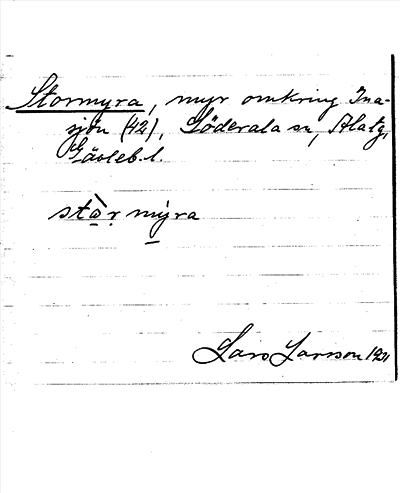 Stormyra, myr omkring Ina-
sjön (42), Söderala sn, Ala tg,
Gävleb. l.
stò̱ṛ mýra
Lars Larsson 1931